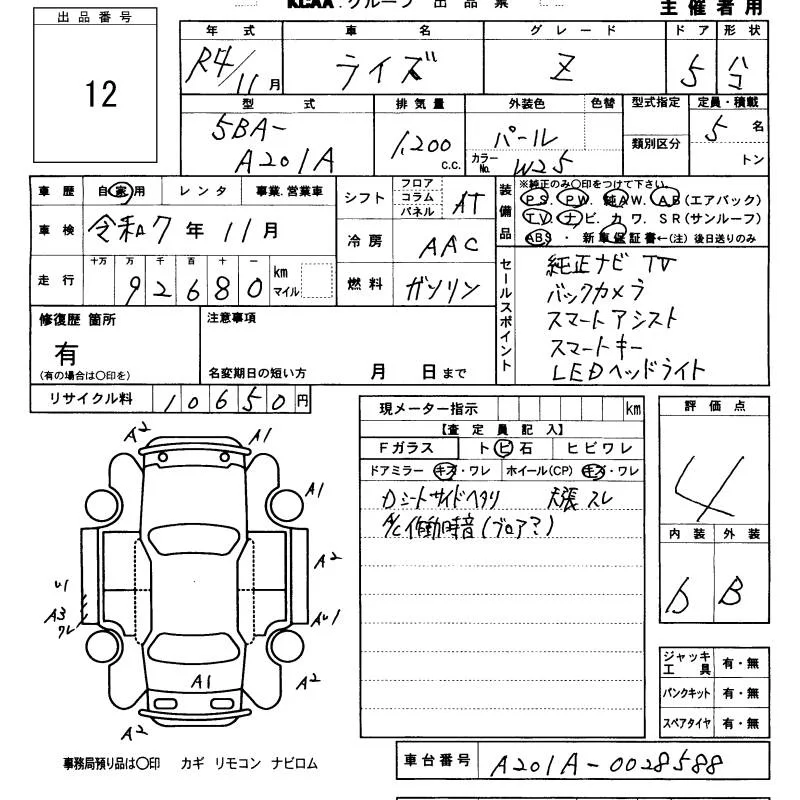 KCAA.グループ 出品票
主催者用
出品番号
12
年式 車名 グレード ドア 形状
R4/11月 ライズ Z 5 ハコ
型式 排気量 外装色 色替 型式指定 定員・積載
5BA-A201A 1,200 c.c. パール 5名
カラーNo. W25 類別区分 トン
車歴 自家用 レンタ 事業.営業車
車検 令和7年11月
走行 十万 万 千 百 十 一 km マイル
92680
シフト フロア コラム パネル AT
冷房 AAC
燃料 ガソリン
装備品 ※純正のみ○印をつけて下さい。
PS. PW. 純AW. AB(エアバック)
TV. ナビ. カワ. SR(サンルーフ)
ABS ・ 新車保証書←(注) 後日送りのみ
セールスポイント
純正ナビ TV
バックカメラ
スマートアシスト
スマートキー
LEDヘッドライト
修復歴 箇所
有
(有の場合は○印を)
注意事項
名変期日の短い方 月 日まで
リサイクル料 10650円
現メーター指示 km
【査定員記入】
Fガラス トビ石 ヒビワレ
ドアミラー キズ・ワレ ホイール(CP) キズ・ワレ
Dシートサイドヘタリ 天張スレ
A/C作動時音(ブロア?)
評価点
4
内装 外装
b B
ジャッキ工具 有・無
パンクキット 有・無
スペアタイヤ 有・無
A2 A1
A1
A2
A3
ワレ
A2
A1
A2
事務局預り品は○印 カギ リモコン ナビロム
車台番号 A201A-0028588